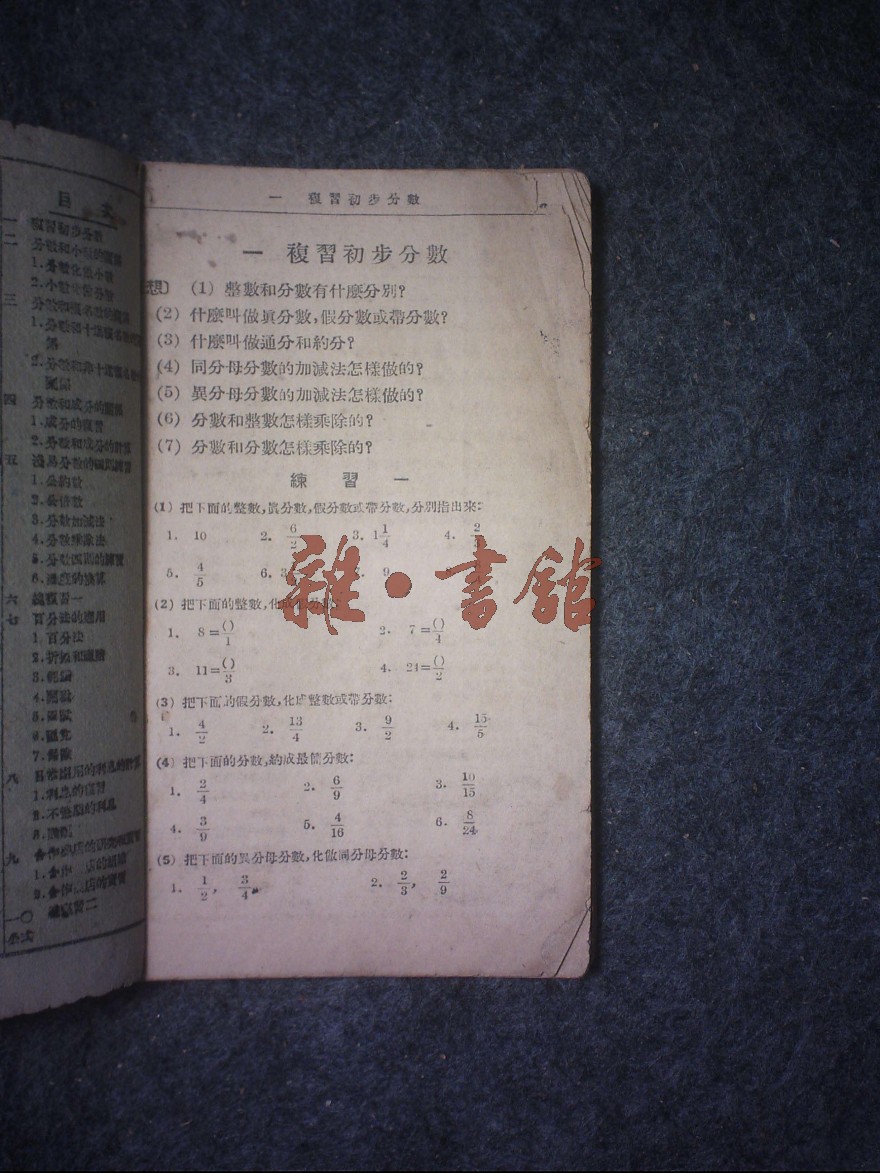 目
一 複習初步分數
二 分數和小數的關係
1.分數化成小數
2.小數化成分數
三
四 分數和成分的關係
1.成分的複習
2.分數和成分的計算
五
1.公約數
2.公倍數
3.分數加減法
4.分數乘除法
5.分數四則的練習
六 總複習一
七 百分法的應用
1.百分法
八
1.利息的複習
九
一〇 總複習二
公式
一 複習初步分數
一 複習初步分數
想〕 (1) 整數和分數有什麼分別?
(2) 什麼叫做真分數,假分數或帶分數?
(3) 什麼叫做通分和約分?
(4) 同分母分數的加減法怎樣做的?
(5) 異分母分數的加減法怎樣做的?
(6) 分數和整數怎樣乘除的?
(7) 分數和分數怎樣乘除的?
練習一
(1) 把下面的整數,真分數,假分數或帶分數,分別指出來:
1. 10 2. 6/2 3. 1 1/4 4. 2/3
5. 4/5 6. 3 9
雜·書館
(2) 把下面的整數,化成假分數:
1. 8=()/1 2. 7=()/4
3. 11=()/3 4. 24=()/2
(3) 把下面的假分數,化成整數或帶分數:
1. 4/2 2. 13/4 3. 9/2 4. 15/5
(4) 把下面的分數,約成最簡分數:
1. 2/4 2. 6/9 3. 10/15
4. 3/9 5. 4/16 6. 8/24
(5) 把下面的異分母分數,化做同分母分數:
1. 1/2, 3/4, 2. 2/3, 2/9